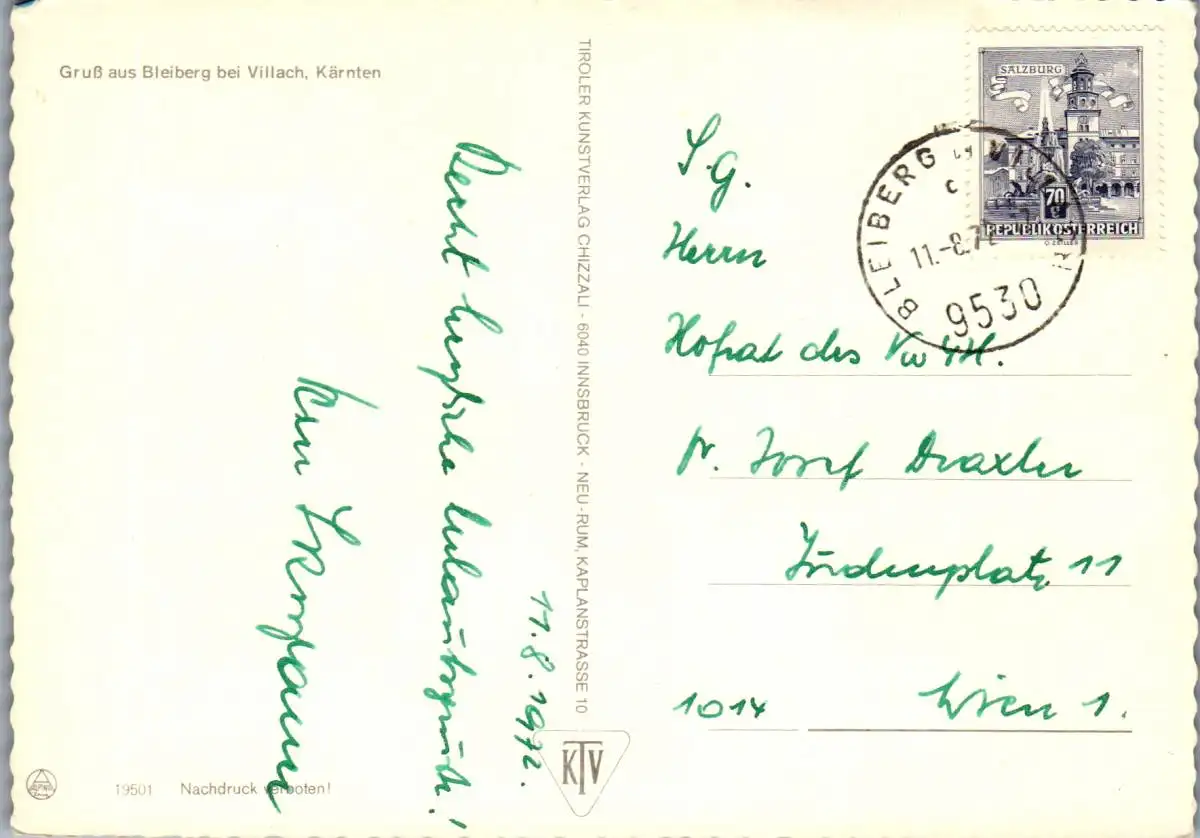 Gruß aus Bleiberg bei Villach, Kärnten
11.8.1972.
Recht herzliche Urlaubsgrüße!
TIROLER KUNSTVERLAG CHIZZALI - 6040 INNSBRUCK - NEU-RUM, KAPLANSTRASSE 10
KTV
19501 Nachdruck verboten!
SALZBURG
70
REPUBLIK ÖSTERREICH
O. ZEILLER
BLEIBERG
c
11.-8.72
9530
S.G.
Herrn
Hofrat des VwGH.
Dr. Josef Draxler
Judenplatz 11
1014 Wien 1.